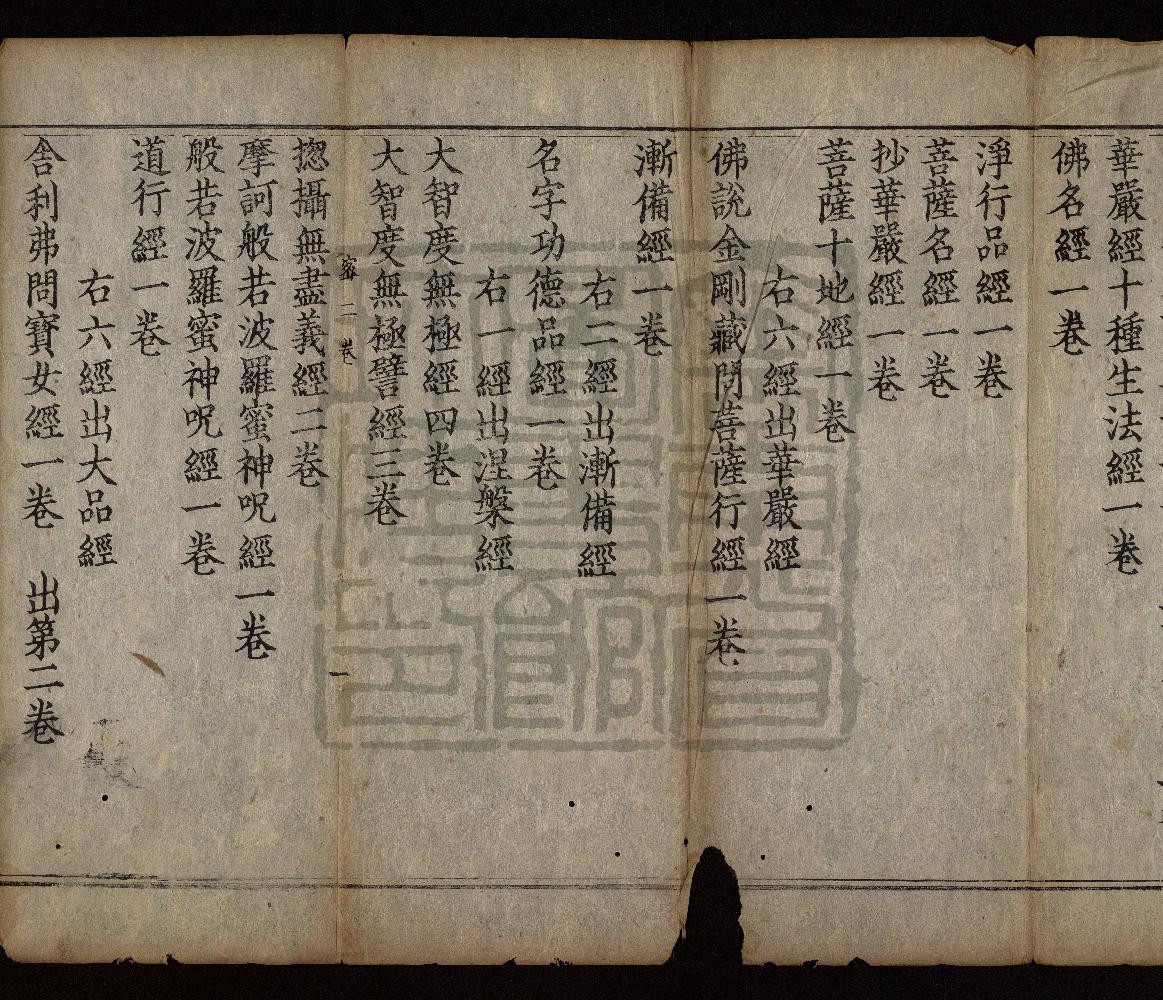 華嚴經十種生法經一卷
佛名經一卷
淨行品經一卷
菩薩名經一卷
抄華嚴經一卷
菩薩十地經一卷
右六經出華嚴經
佛說金剛藏問菩薩行經一卷
漸備經一卷
右二經出漸備經
名字功德品經一卷
右一經出涅槃經
大智度無極經四卷
大智度無極譬經三卷
密 二卷 一
揔攝無盡義經二卷
摩訶般若波羅蜜神呪經一卷
般若波羅蜜神呪經一卷
道行經一卷
右六經出大品經
舍利弗問寶女經一卷 出第二卷